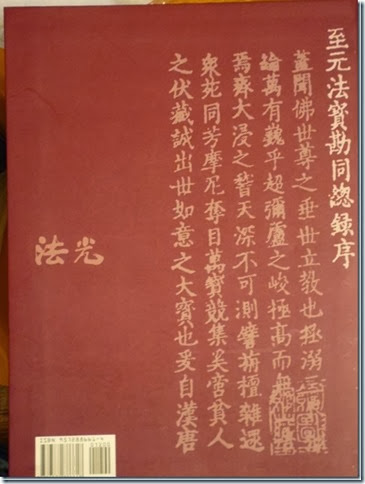 至元法寶勘同總錄序
蓋聞佛世尊之垂世立教也拯溺三
論萬有巍乎超彌廬之峻極高而無
焉大浸之稽天深不可測譬栴檀雜遝
衆苑同芳摩尼奪目萬寶競集奚啻貧人
之伏藏誠出世如意之大寶也爰自漢唐
法光
ISBN